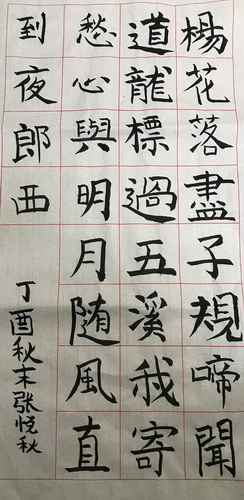 楊花落盡子規啼聞
道龍標過五溪我寄
愁心與明月随風直
到夜郎西
丁酉秋末张悦秋